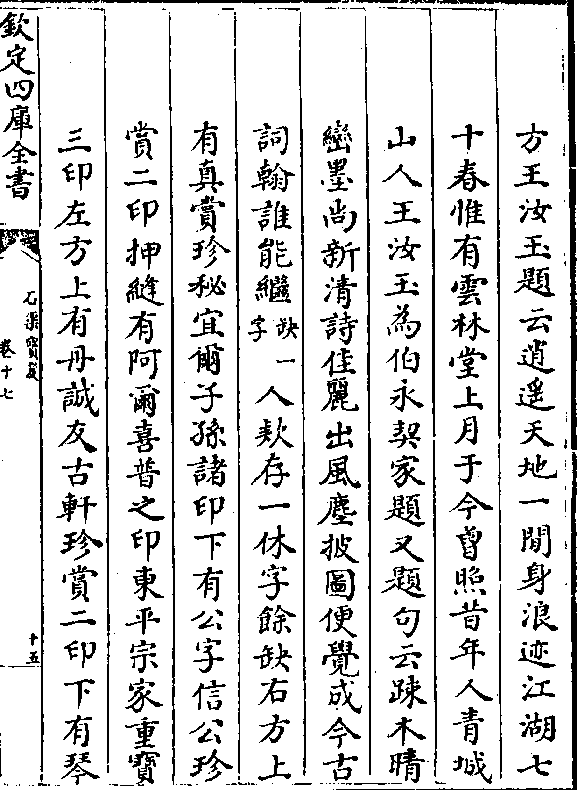 方王汝玉題云逍遥天地一閒身浪迹江湖七
十春惟有雲林堂上月于今曾照昔年人青城
山人王汝玉為伯永契家題又題句云踈木晴
巒墨尚新清詩佳麗出風塵披圖便覺成今古
詞翰誰能繼缺一字人欵存一休字餘缺右方上
有真賞珍秘宜爾子孫諸印下有公字信公珍
賞二印押縫有阿爾喜普之印東平宗家重寶
三印左方上有丹誠友古軒珍賞二印下有琴
欽定四庫全書
石渠寶笈
卷十七
十五